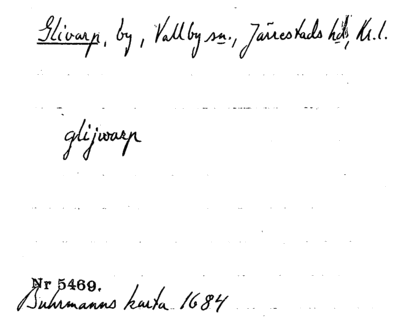 Glivarp, by, Vallby sn., Järrestads hd, Kr.l.
glijwarp
Nr 5469.
Buhrmanns karta 1684